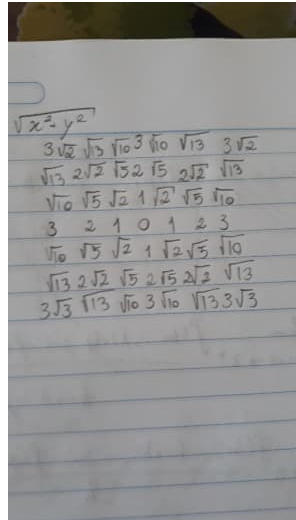 √x²-y²
3√2 √13 √10 3 √10 √13 3√2
√13 2√2 √5 2 √5 2√2 √13
√10 √5 √2 1 √2 √5 √10
3 2 1 0 1 2 3
√10 √5 √2 1 √2 √5 √10
√13 2√2 √5 2 √5 2√2 √13
3√3 √13 √10 3 √10 √13 3√3